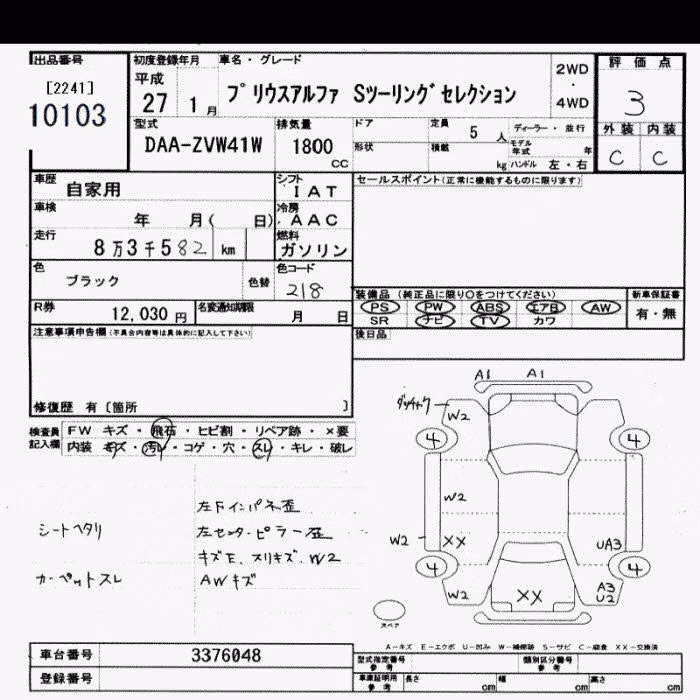 出品番号
[2241]
10103
初度登録年月
平成
27 1月
車名・グレード
プリウスアルファ Sツーリングセレクション
2WD
・
4WD
評価点
3
外装 内装
C C
型式
DAA-ZVW41W
排気量
1800
CC
ドア
形状
定員
5人
積載
kg
ディーラー・並行
モデル年式 年
ハンドル 左・右
車歴
自家用
シフト
IAT
セールスポイント(正常に機能するものに限ります)
車検
年 月( 日)
冷房
AAC
走行
8万3千582 km
燃料
ガソリン
色
ブラック
色替
色コード
218
装備品(純正品に限り○をつけてください)
PS PW ABS エアB AW
SR ナビ TV カワ
新車保証書
有・無
R券
12,030円
名変通知期限
月 日
後日品
注意事項申告欄(不具合内容等は具体的に記入して下さい)
修復歴 有〔箇所 〕
検査員記入欄
FW キズ・飛石・ヒビ割・リペア跡・×要
内装 キズ・汚レ・コゲ・穴・スレ・キレ・破レ
左Fインパネ歪
シートヘタリ
左センターピラー歪
キズE、スリキズ、W2
カーペットスレ
AWキズ
A1 A1
W2
4 4
W2
W2 XX
UA3
4 4
W2
XX
A3
U2
スペア
A-キズ E-エクボ U-凹み W-補修跡 S-サビ C-腐食 XX-交換済
車台番号
3376048
登録番号
型式指定番号
参考
類別区分番号
参考
車庫証明用
参考
長さ cm
幅 cm
高さ cm